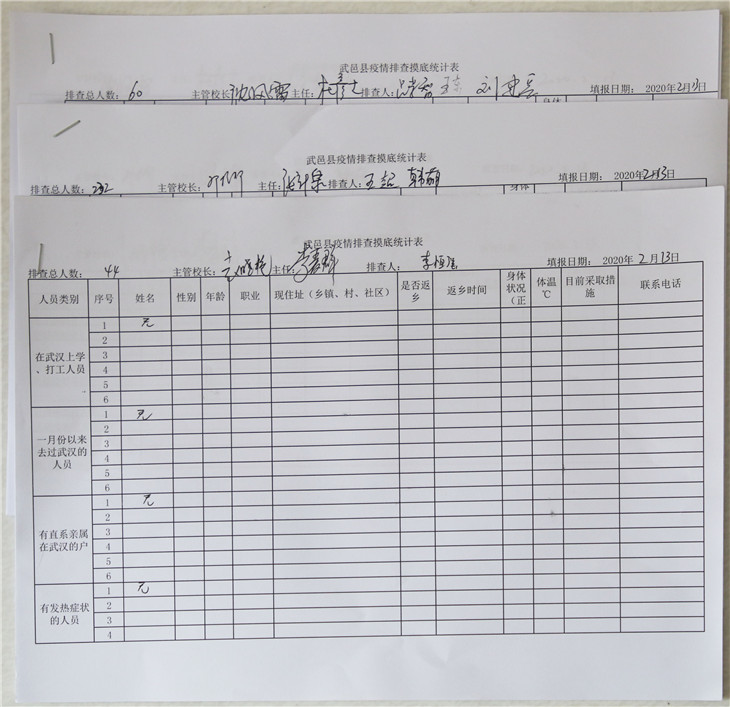 武邑县疫情排查摸底统计表
排查总人数: 60 主管校长: 主任: 排查人: 填报日期: 2020年2月 日
武邑县疫情排查摸底统计表
排查总人数: 232 主管校长: 主任: 排查人: 填报日期: 2020年2月13日
武邑县疫情排查摸底统计表
排查总人数: 44 主管校长: 主任: 排查人: 填报日期: 2020年2月13日
人员类别 序号 姓名 性别 年龄 职业 现住址（乡镇、村、社区） 是否返乡 返乡时间 身体状况（正 体温℃ 目前采取措施 联系电话
在武汉上学、打工人员
1 无
2
3
4
5
6
一月份以来去过武汉的人员
1 无
2
3
4
5
6
有直系亲属在武汉的户
1 无
2
3
4
5
6
有发热症状的人员
1 无
2
3
4